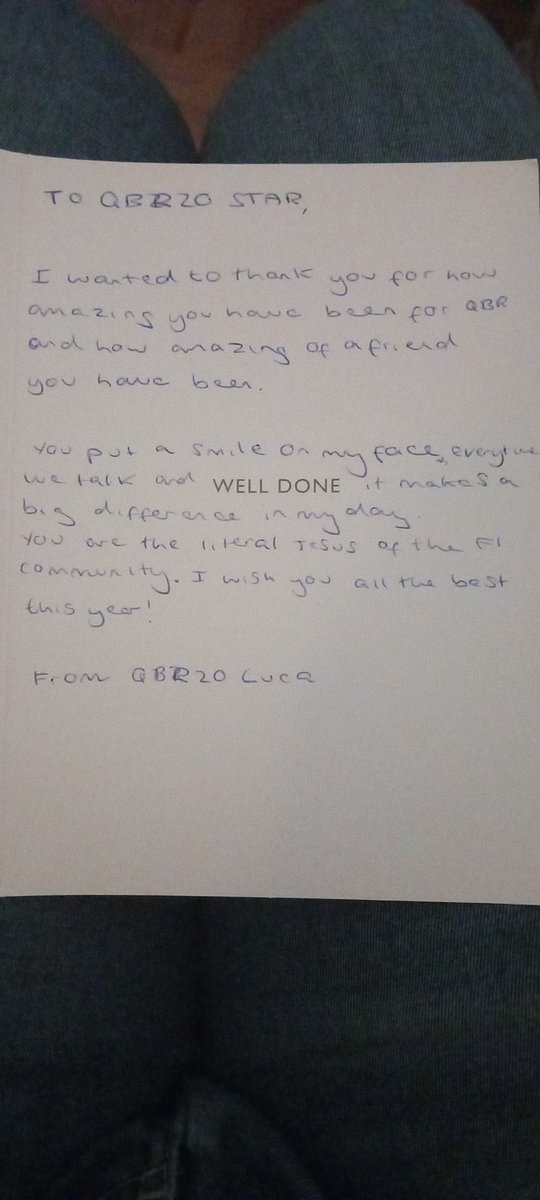 TO QBR20 STAR,
I wanted to thank you for how
amazing you have been for QBR
and how amazing of a friend
you have been.
You put a smile on my face, everytime
we talk and WELL DONE it makes a
big difference in my day.
You are the literal Jesus of the F1
community. I wish you all the best
this year!
From QBR20 Luca